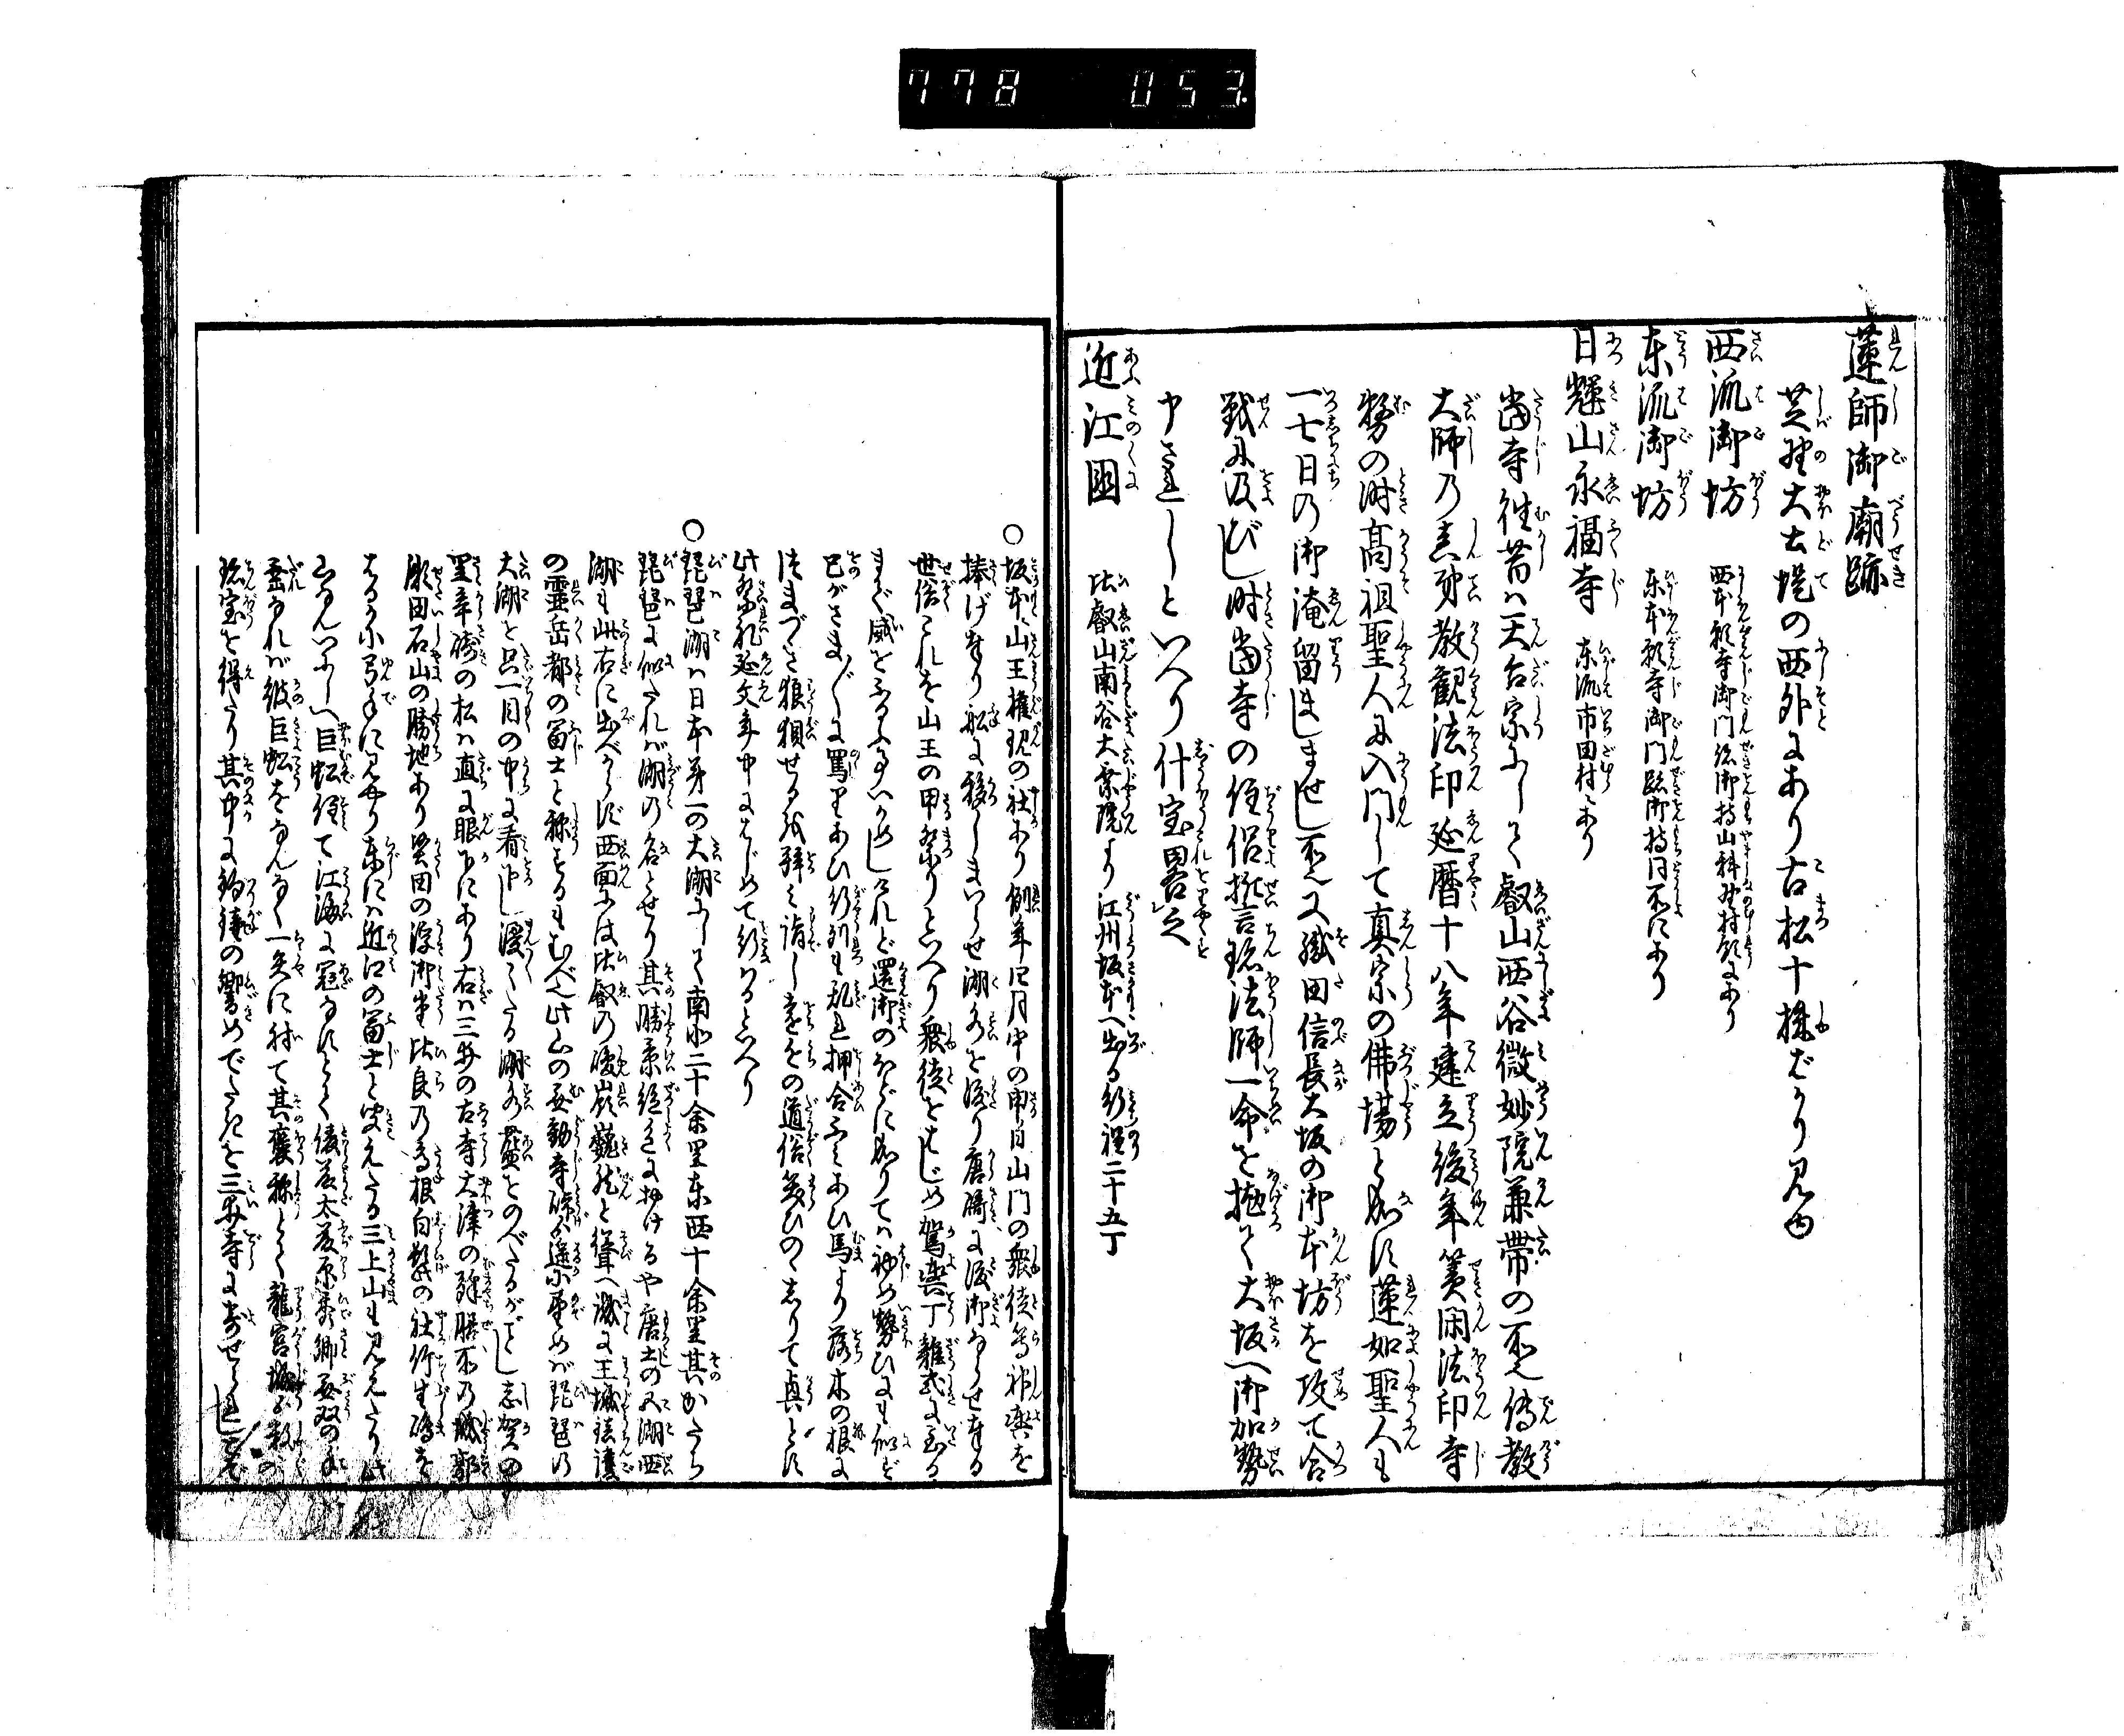 778 053.
蓮師御廟跡
芝野大土堤の西外にあり古松十株ばかり見ゆ
西流御坊 西本願寺御門跡御持山科野村領にあり
東流御坊 東本願寺御門跡御持同所にあり
日輝山永福寺 東流市田村にあり
当寺往昔は天台宗にして叡山西谷微妙院兼帯の所伝教
大師乃真弟教観法印延暦十八年建立後年簀閑法印寺
務の時高祖聖人に入門して真宗の佛場と成す蓮如聖人も
一七日の御淹留ましませし所又織田信長大坂の御本坊を攻て合
戦に及びし時当寺の住侶誓言証法師一命を抛て大坂へ御加勢
申されしといへり什宝畧之
近江国 比叡山南谷大乗院より江州坂本へ出る行程二十五丁
○坂本山王権現の社あり例年四月中の申日山門の衆徒等神輿を
捧げ奉り船に移しまいらせ湖水を渡り唐崎に渡御なさせ奉る
世俗これを山王の申祭りといへり衆徒をはじめ駕輿丁雑式に至る
まで威をふるふ事いかめしけれど還御のほどに成りては初め勢ひにも似ず
己がさまざまに罵りあひ行列も乱れ押合ふみあひ馬より落木の根に
つまづき狼狽せる
此祭礼延文年中にはじめて行はるといへり
○琵琶湖は日本第一の大湖にして南北二十余里東西十余里其かたち
琵琶に似たれば湖の名とせり其勝景絶をに抽けるや唐土の西湖
湖も此右に出べからず西面には比叡の峻嶺巍然と聳へ誠に王城鎮護
の霊岳都の冨士と称するもむべ也此山の無動寺
大湖を只一目の中に看下し漫々たる湖水藍をのべたるがごとし志賀の
里辛崎の松は直に眼下にあり右は三井の古寺大津の駅膳所乃城郭
勢田石山の勝地あり堅田の浮御堂比良乃高根白鬚の社竹生嶋を
はるか小弓手に見やり東には近江の冨士と聞えたる三上山も見えたり此
山なんいにしへ巨蚣住て江海に冠なすとて俵藤太藤原秀郷無双の手
垂なれば彼巨蚣をなんなく一矢に射て其褒称とて龍宮城
珍宝を得たり其中に釣鐘の響めでたきを三井寺に寄せられし